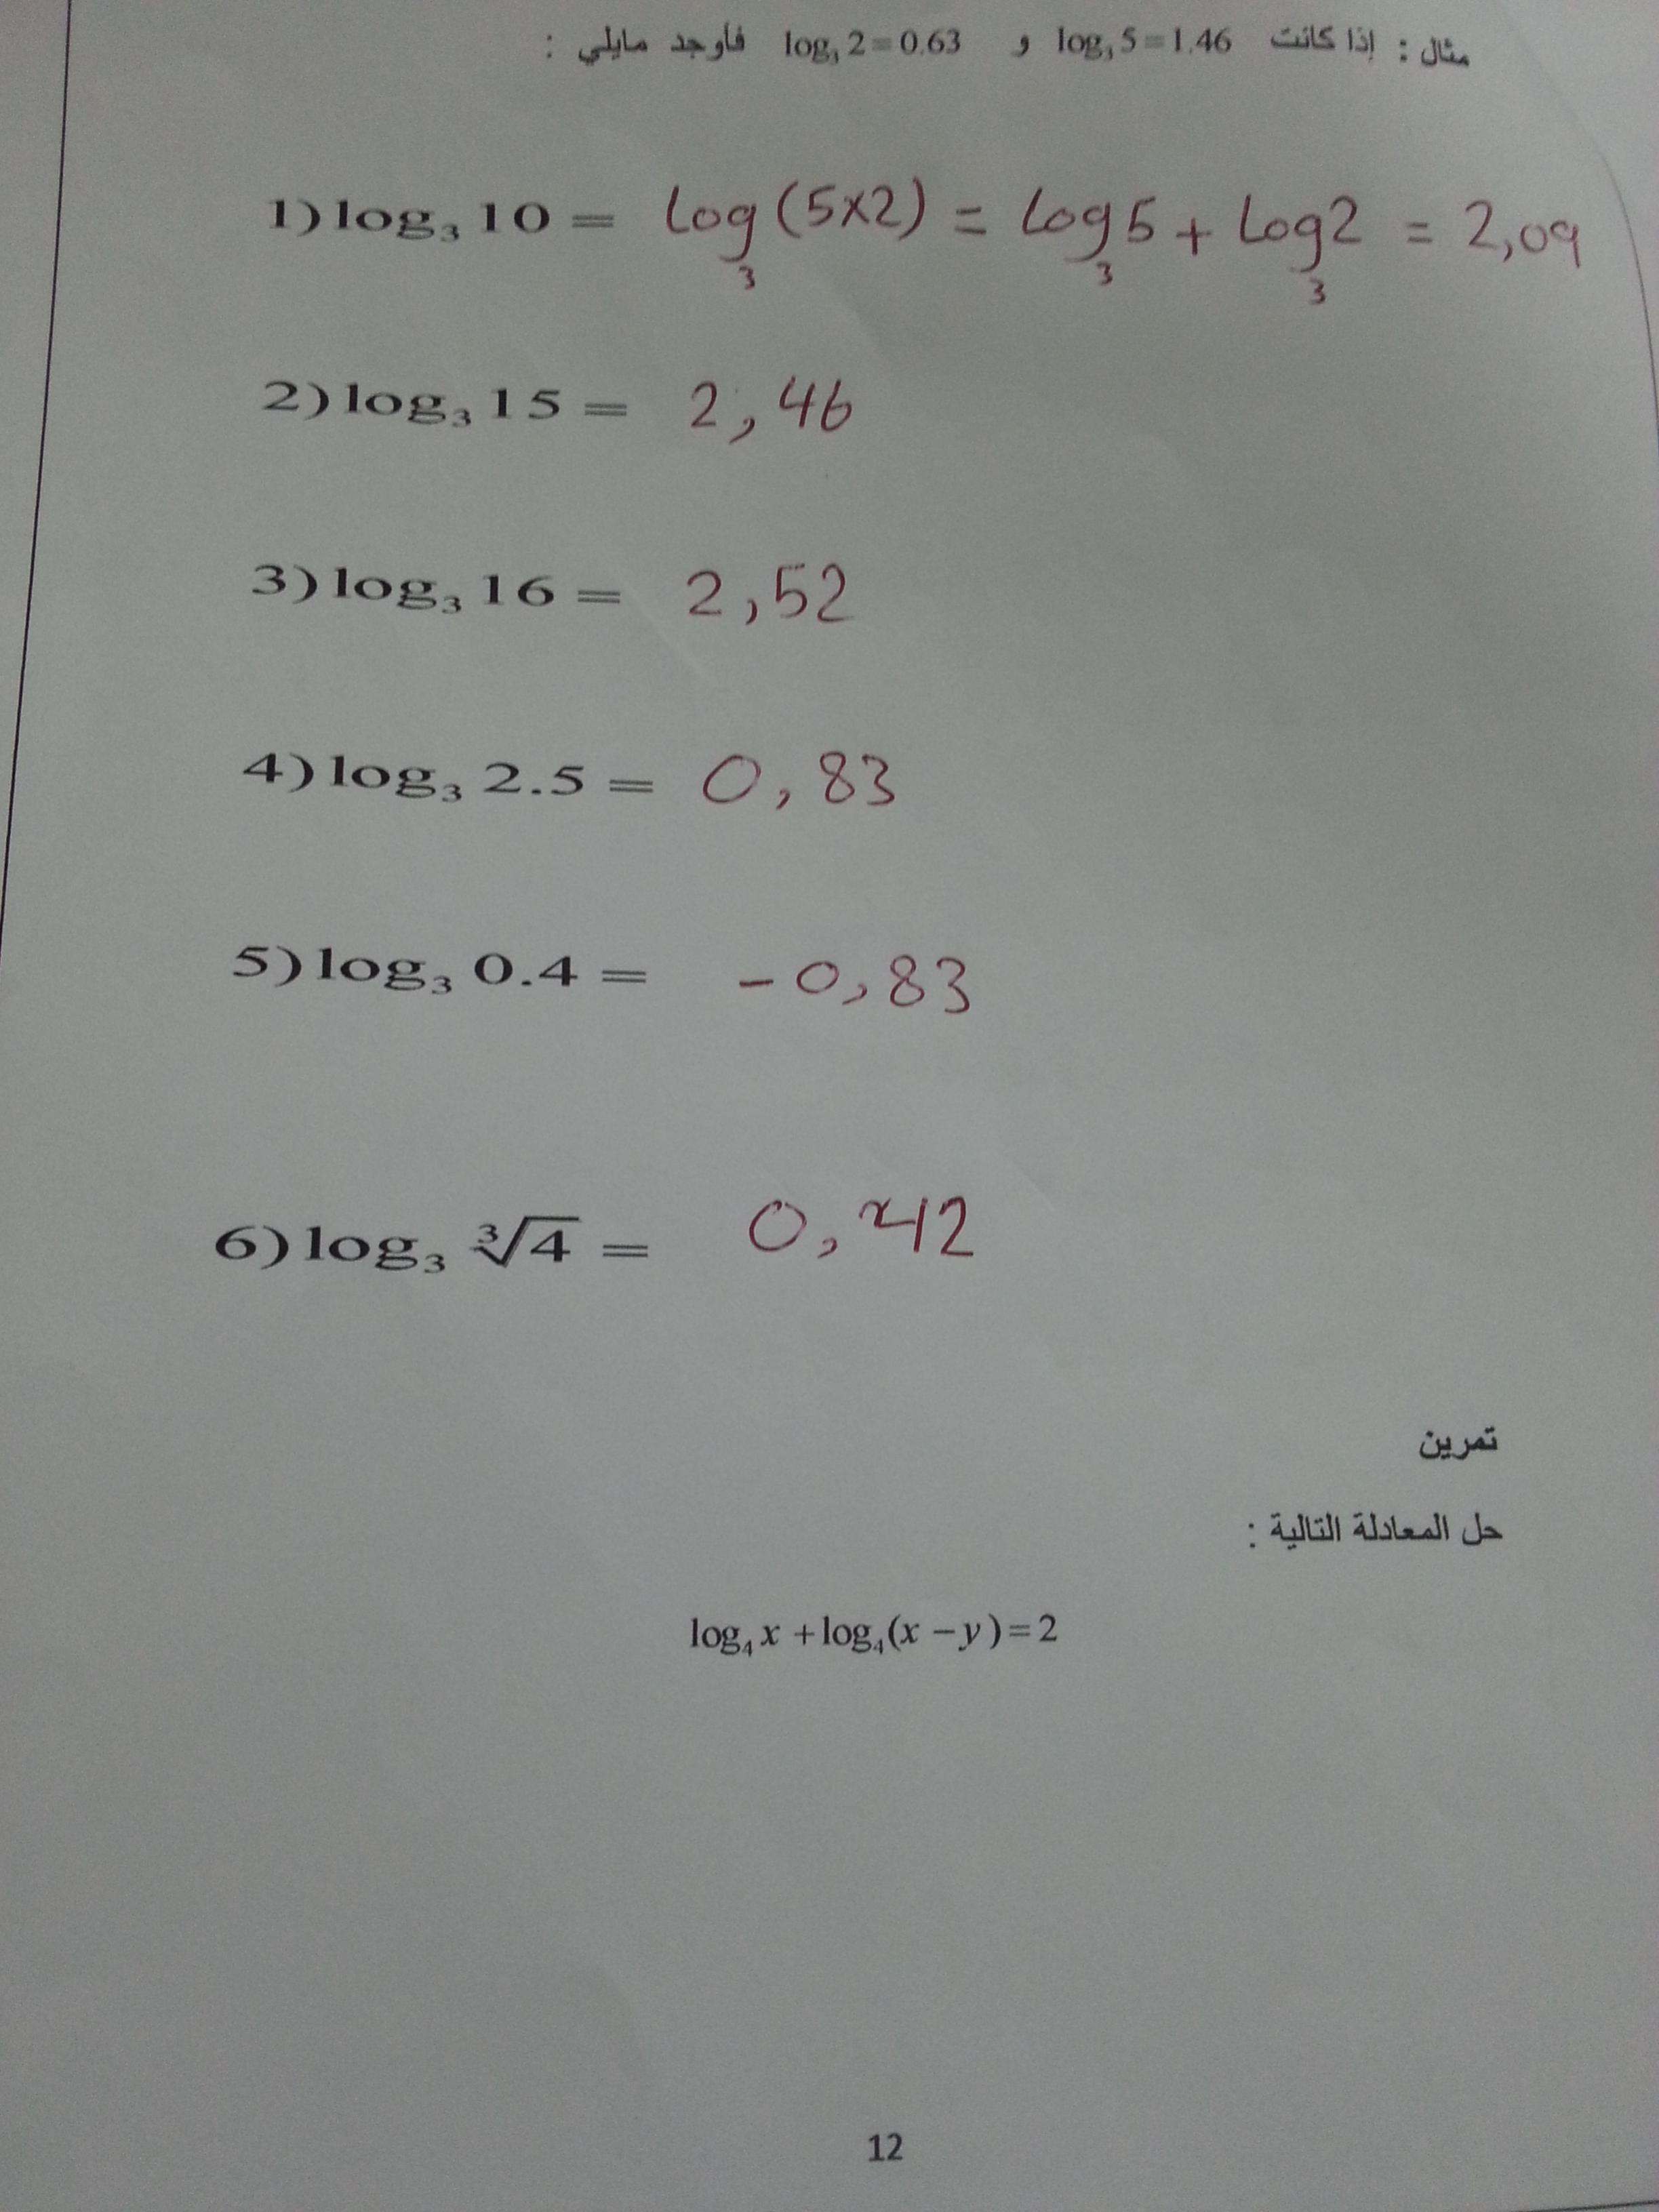 مثال : إذا كانت log₃ 5 = 1.46 و log₃ 2 = 0.63 فأوجد مايلي :
1) log₃ 10 = log₃ (5×2) = log₃ 5 + log₃ 2 = 2,09
2) log₃ 15 = 2,46
3) log₃ 16 = 2,52
4) log₃ 2.5 = 0,83
5) log₃ 0.4 = -0,83
6) log₃ ∛4 = 0,42
تمرين
حل المعادلة التالية :
log₄ x + log₄ (x - y) = 2
12